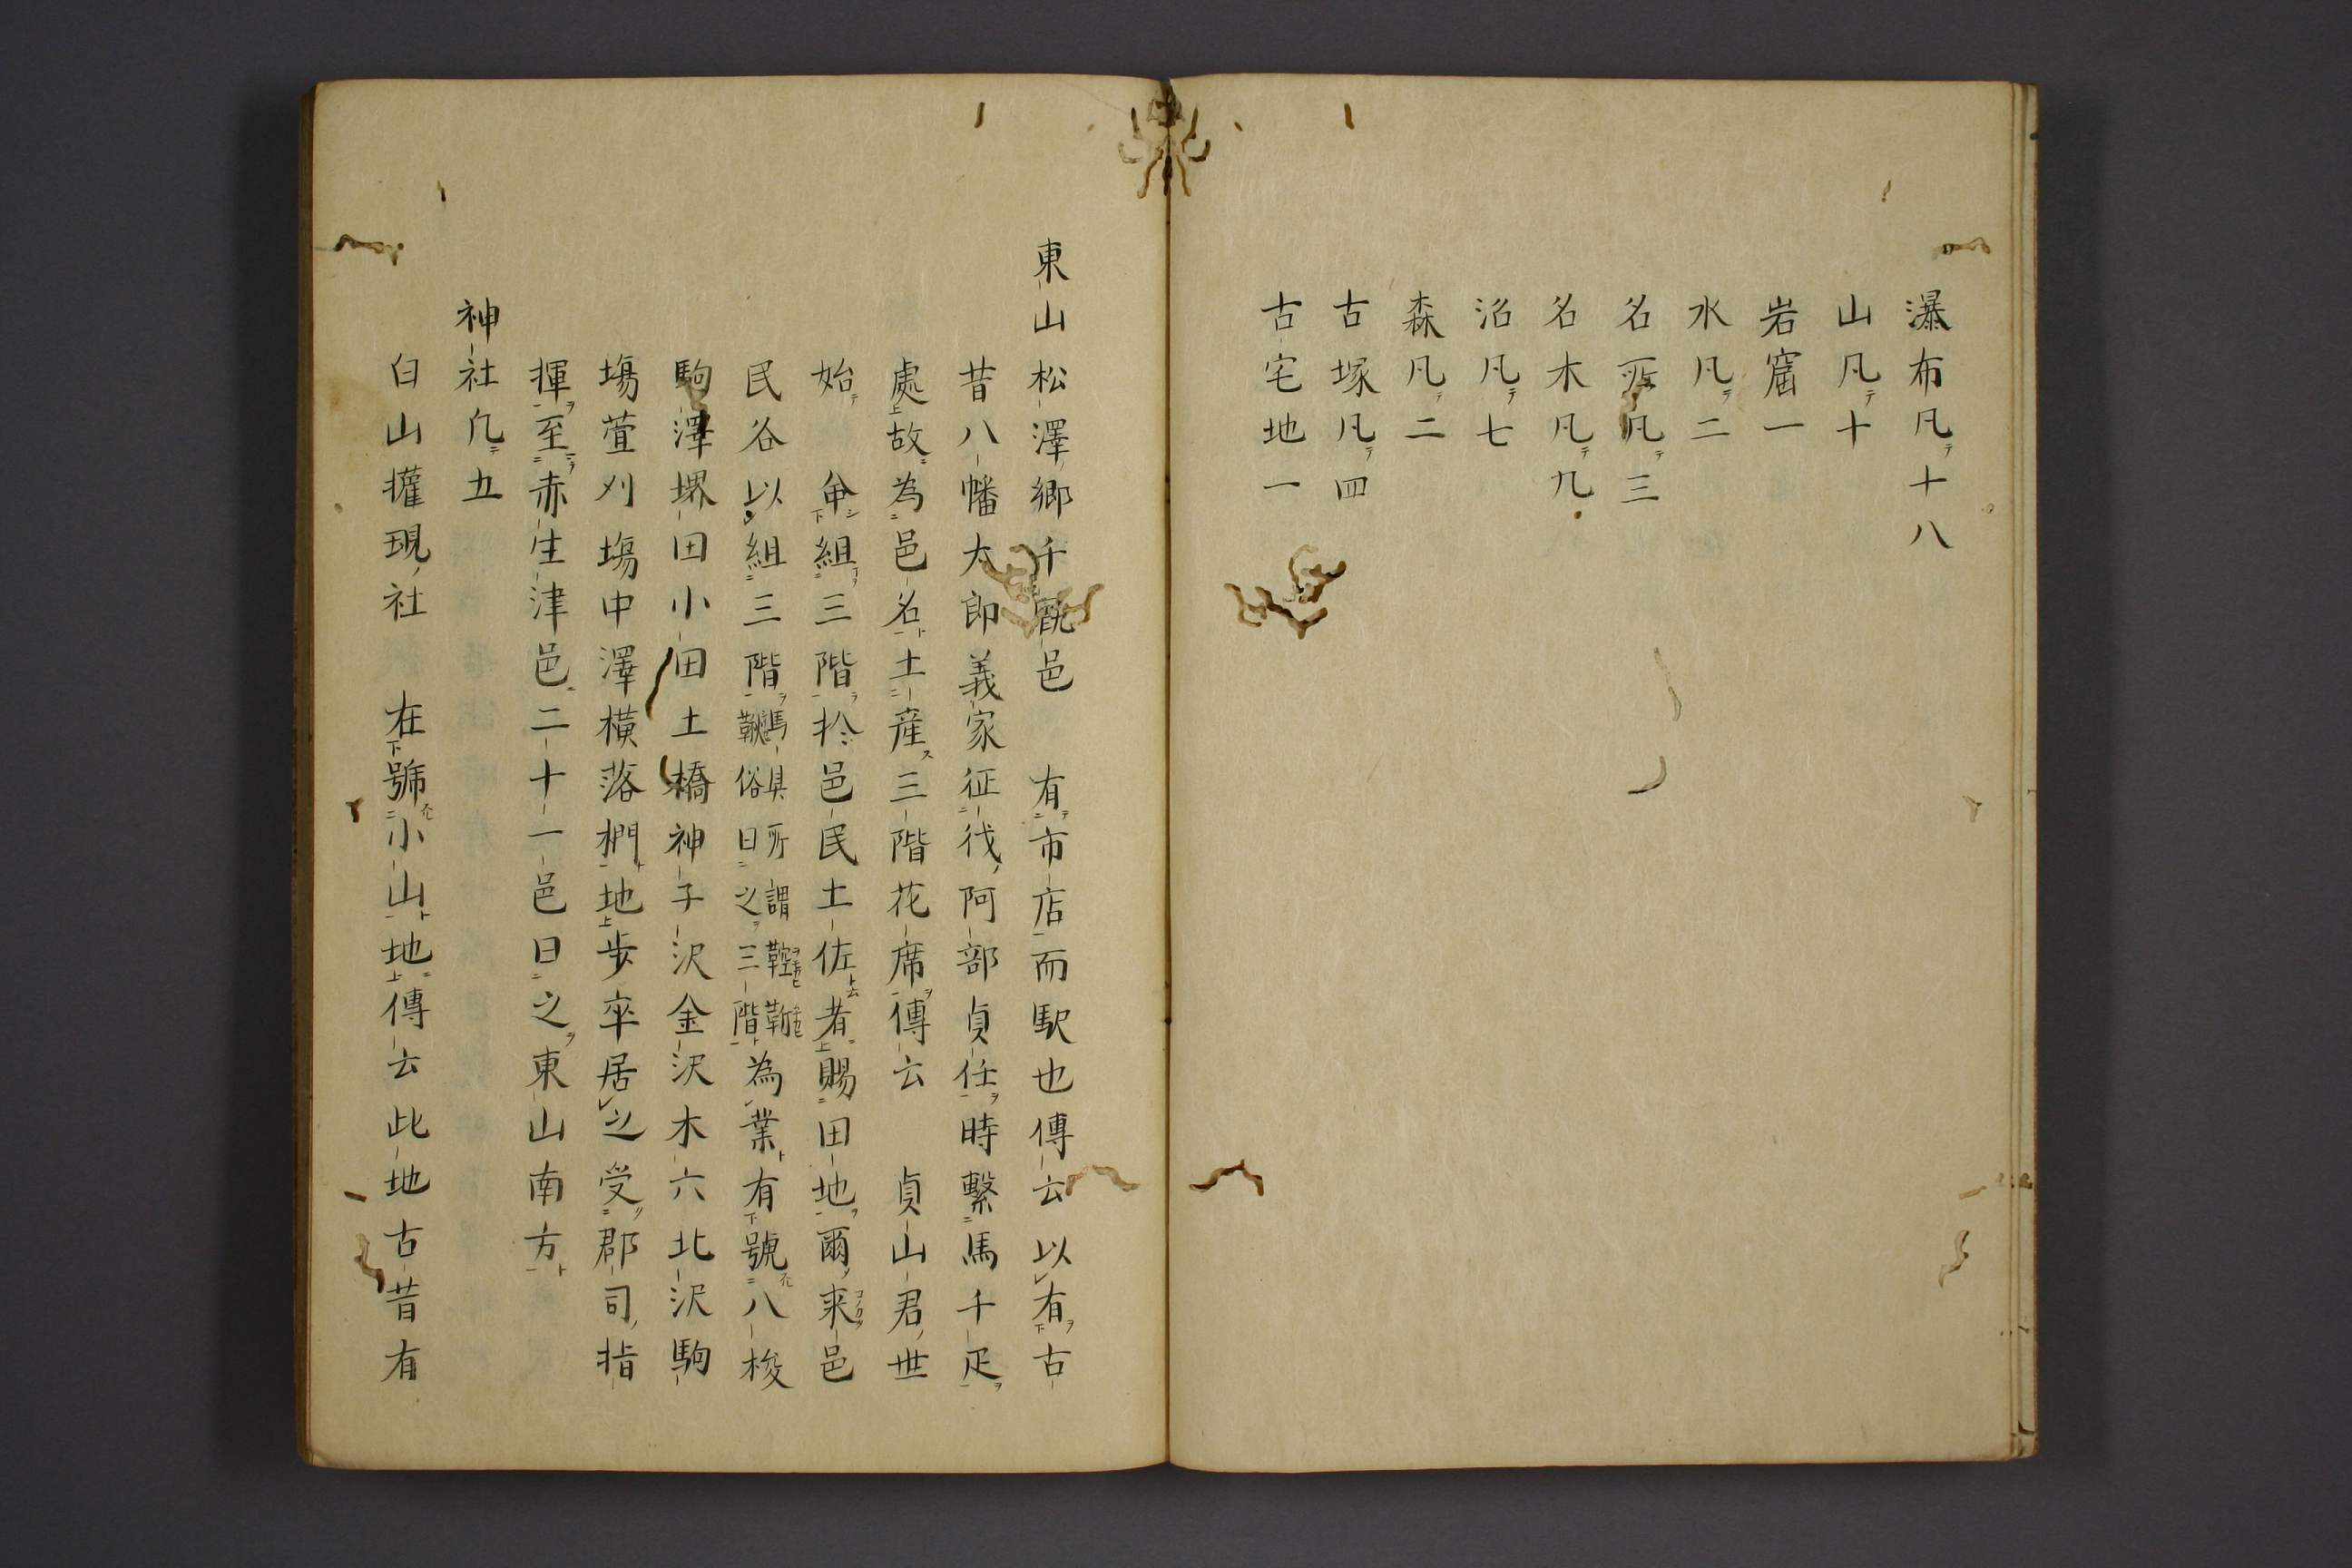 瀑布凡十八
山凡十
岩窟一
水凡二
名所凡三
名木凡九
沼凡七
森凡二
古塚凡四
古宅地一
東山松澤郷千厩邑　有市店而駅也傳云以有古
昔八幡太郎義家征伐阿部貞任時繋馬千疋
處故為邑名土産三階花席傳云　貞山君世
始　命組三階於邑民土佐者賜田地爾来邑
民谷以組三階馬具所謂鞚靮鞦俗曰之三階為業有號八梭
駒澤堺田小田土橋神子沢金沢木六北沢駒
場萱刈場中澤横落椚地歩卒居之受郡司指
揮至赤生津邑二十一邑曰之東山南方
神社凡五
白山權現社　在號小山地傳云此地古昔有